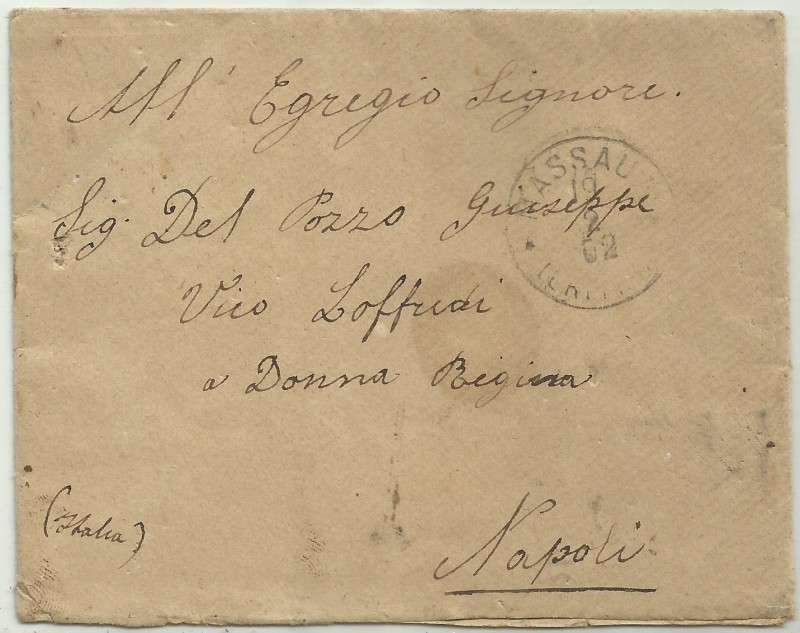 All' Egregio Signore.
Sig. Del Pozzo Giuseppe
Vico Loffredi
a Donna Regina
(Italia)
Napoli
MASSAUA
12
2
02
(ERITREA)